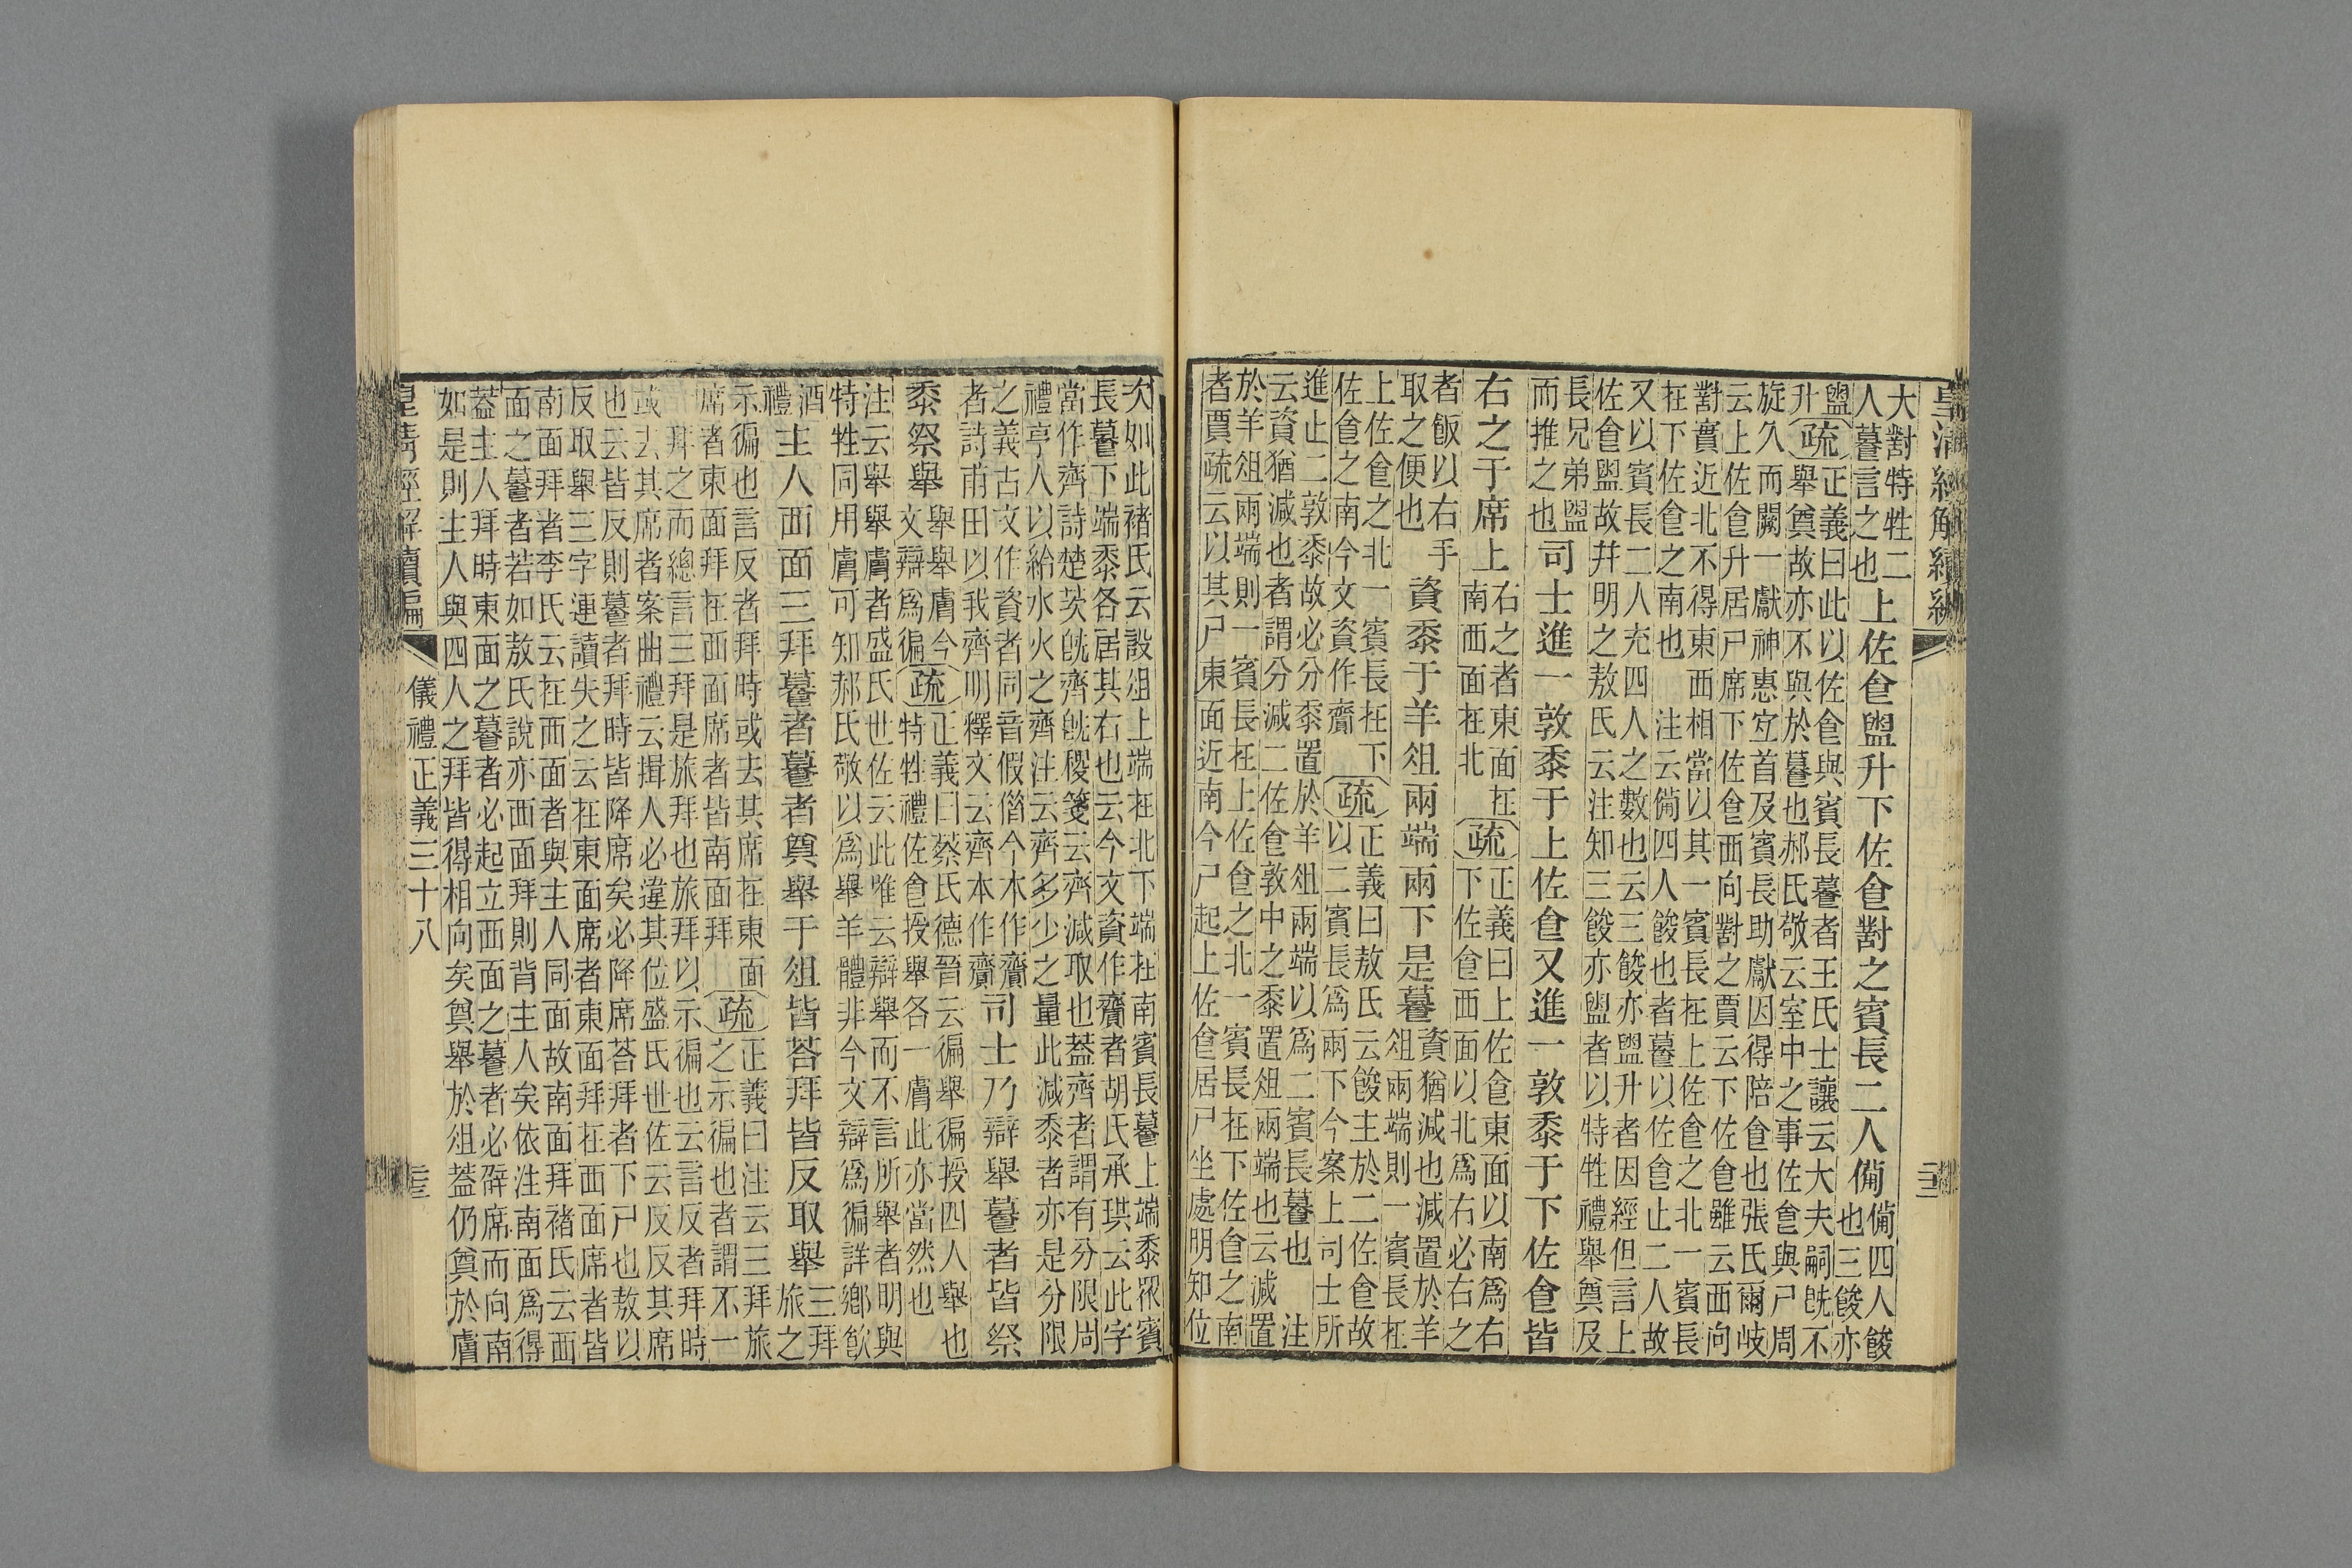 皇清經解續編
大對特牲二
人䭕言之也
上佐食盥升下佐食對之賓長二人備
備四人餕
也三餕亦
盥
升
疏
正義曰此以佐食與賓長䭕者王氏士讓云大夫嗣旣不
舉奠故亦不與於䭕也郝氏敬云室中之事佐食與尸周
旋久而闕一獻神惠宐首及賓長助獻因得陪食也張氏爾岐
云上佐食升居尸席下佐食西向對之賈云下佐食雖云西向
對實近北不得東西相當以其一賓長在上佐食之北一賓長
在下佐食之南也 注云備四人餕也者䭕以佐食止二人故
又以賓長二人充四人之數也云三餕亦盥升者因經但言上
佐食盥故并明之敖氏云注知三餕亦盥者以特牲禮舉奠及
長兄弟盥
而推之也
司士進一敦黍于上佐食又進一敦黍于下佐食皆
右之于席上
右之者東面在
南西面在北
疏
正義曰上佐食東面以南爲右
下佐食西面以北爲右必右之
者飯以右手
取之便也
資黍于羊俎兩端兩下是䭕
資猶減也減置於羊
俎兩端則一賓長在
上佐食之北一賓長在下
佐食之南今文資作齎
疏
正義曰敖氏云餕主於二佐食故
以二賓長爲兩下今案上司士所
進止二敦黍故必分黍置於羊俎兩端以爲二賓長䭕也 注
云資猶減也者謂分減二佐食敦中之黍置俎兩端也云減置
於羊俎兩端則一賓長在上佐食之北一賓長在下佐食之南
者賈疏云以其尸東面近南今尸起上佐食居尸坐處明知位
次如此褚氏云設俎上端在北下端在南賓長䭕上端黍眾賓
長䭕下端黍各居其右也云今文資作齎者胡氏承珙云此字
當作齊詩楚茨旣齊旣稷箋云齊減取也蓋齊者謂有分限周
禮亨人以給水火之齊注云齊多少之量此減黍者亦是分限
之義古文作資者同音假借今本作齎
者詩甫田以我齊明釋文云齊本作齎
司士乃辯舉䭕者皆祭
黍祭舉
舉舉膚今
文辯爲徧
疏
正義曰蔡氏德晉云徧舉徧授四人舉也
特牲禮佐食授舉各一膚此亦當然也
注云舉舉膚者盛氏世佐云此唯云辯舉而不言所舉者明與
特牲同用膚可知郝氏敬以爲舉羊體非今文辯爲徧詳鄉飮
酒
禮
主人西面三拜䭕者䭕者奠舉于俎皆荅拜皆反取舉
三拜
旅之
示徧也言反者拜時或去其席在東面
席者東面拜在西面席者皆南面拜
疏
正義曰注云三拜旅
之示徧也者謂不一
拜之而總言三拜是旅拜也旅拜以示徧也云言反者拜時
或去其席者案曲禮云揖人必違其位盛氏世佐云反反其席
也云皆反則䭕者拜時皆降席矣必降席荅拜者下尸也敖以
反取舉三字連讀失之云在東面席者東面拜在西面席者皆
南面拜者李氏云在西面者與主人同面故南面拜褚氏云西
面之䭕者若如敖氏說亦西面拜則背主人矣依注南面爲得
蓋主人拜時東面之䭕者必起立西面之䭕者必辟席而向南
如是則主人與四人之拜皆得相向矣奠舉於俎蓋仍奠於膚
皇清經解續編
儀禮正義三十八